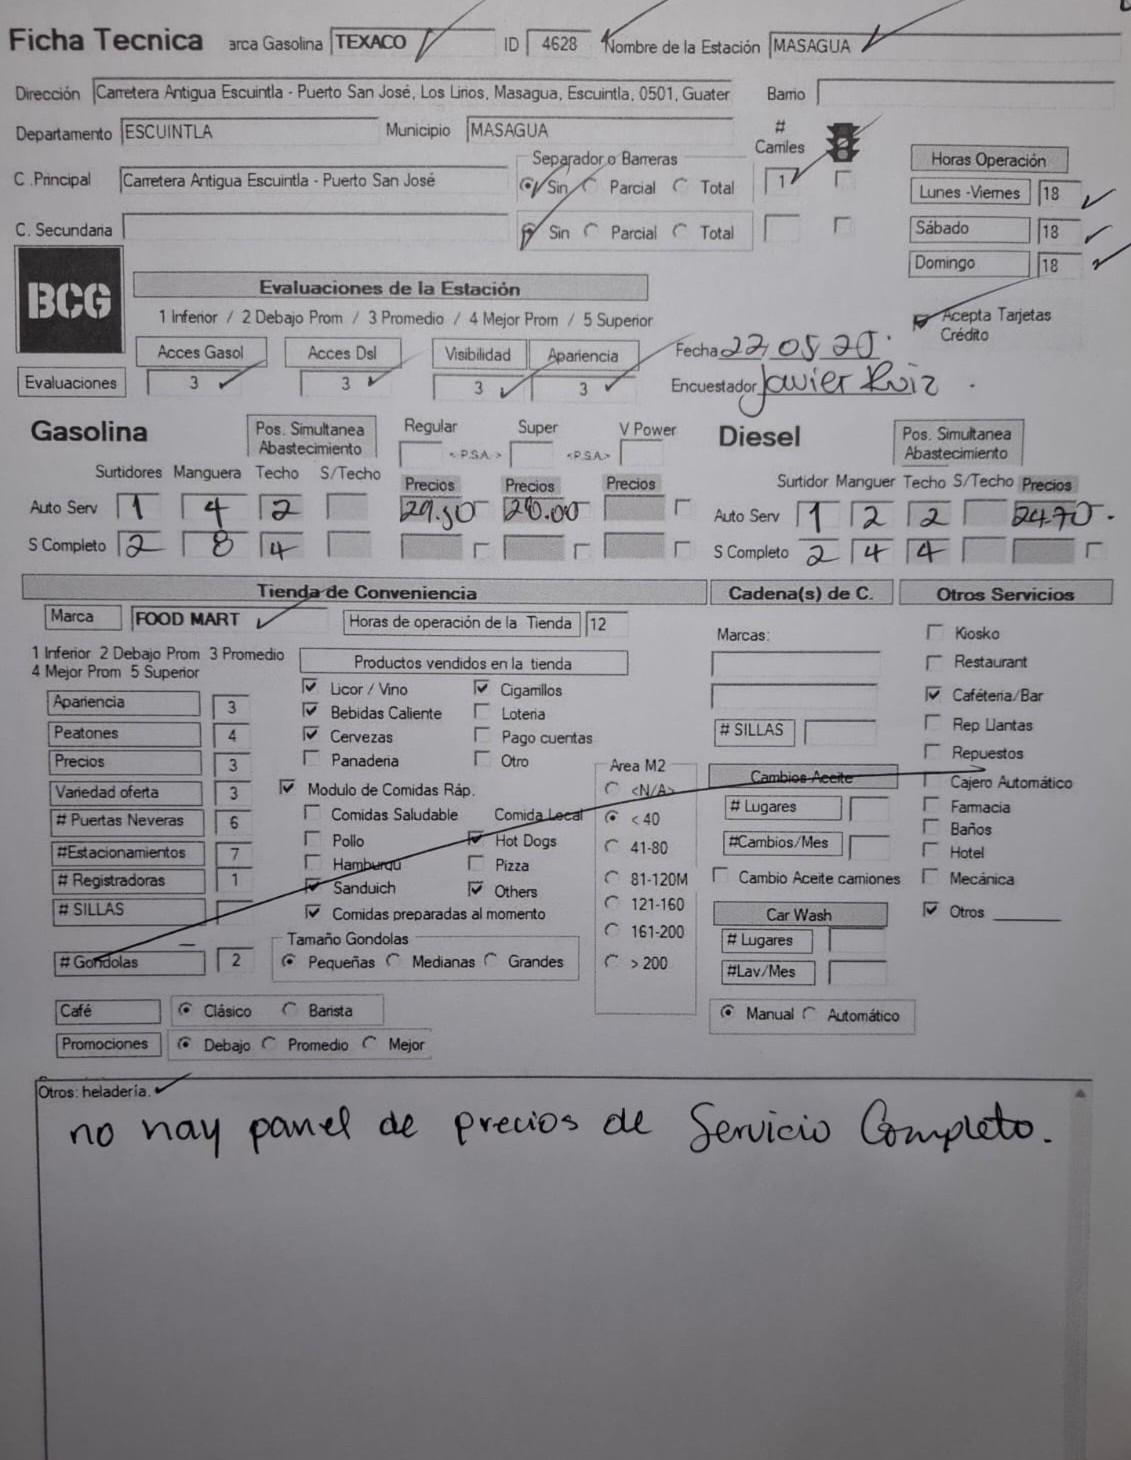 Ficha Tecnica arca Gasolina TEXACO ID 4628 Nombre de la Estación MASAGUA
Dirección Carretera Antigua Escuintla - Puerto San José, Los Lirios, Masagua, Escuintla, 0501, Guater Barrio
Departamento ESCUINTLA Municipio MASAGUA # Carriles
C .Principal Carretera Antigua Escuintla - Puerto San José Separador o Barreras Sin Parcial Total 1
C. Secundaria Sin Parcial Total
Horas Operación
Lunes -Viernes 18
Sábado 18
Domingo 18
Acepta Tarjetas Crédito
BCG
Evaluaciones de la Estación
1 Inferior / 2 Debajo Prom / 3 Promedio / 4 Mejor Prom / 5 Superior
Acces Gasol Acces Dsl Visibilidad Apariencia
Evaluaciones 3 3 3 3
Fecha 22/05/25.
Encuestador Javier Ruiz.
Gasolina Pos. Simultanea Abastecimiento Regular Super V Power
<.P.S.A.> <P.S.A>
Surtidores Manguera Techo S/Techo Precios Precios Precios
Auto Serv 1 4 2 29.50 28.00
S Completo 2 8 4
Diesel Pos. Simultanea Abastecimiento
Surtidor Manguer Techo S/Techo Precios
Auto Serv 1 2 2 24.70.
S Completo 2 4 4
Tienda de Conveniencia Cadena(s) de C. Otros Servicios
Marca FOOD MART Horas de operación de la Tienda 12
1 Inferior 2 Debajo Prom 3 Promedio
4 Mejor Prom 5 Superior
Apariencia 3
Peatones 4
Precios 3
Variedad oferta 3
# Puertas Neveras 6
#Estacionamientos 7
# Registradoras 1
# SILLAS
# Gondolas 2
Productos vendidos en la tienda
Licor / Vino Cigarrillos
Bebidas Caliente Loteria
Cervezas Pago cuentas
Panaderia Otro
Modulo de Comidas Ráp.
Comidas Saludable Comida Local
Pollo Hot Dogs
Hamburgu Pizza
Sanduich Others
Comidas preparadas al momento
Tamaño Gondolas
Pequeñas Medianas Grandes
Area M2
<N/A>
< 40
41-80
81-120M
121-160
161-200
> 200
Marcas:
# SILLAS
Cambios Aceite
# Lugares
#Cambios/Mes
Cambio Aceite camiones
Car Wash
# Lugares
#Lav/Mes
Manual Automático
Kiosko
Restaurant
Caféteria/Bar
Rep Llantas
Repuestos
Cajero Automático
Farmacia
Baños
Hotel
Mecánica
Otros
Café Clásico Barista
Promociones Debajo Promedio Mejor
Otros: heladería.
no hay panel de precios de Servicio Completo.